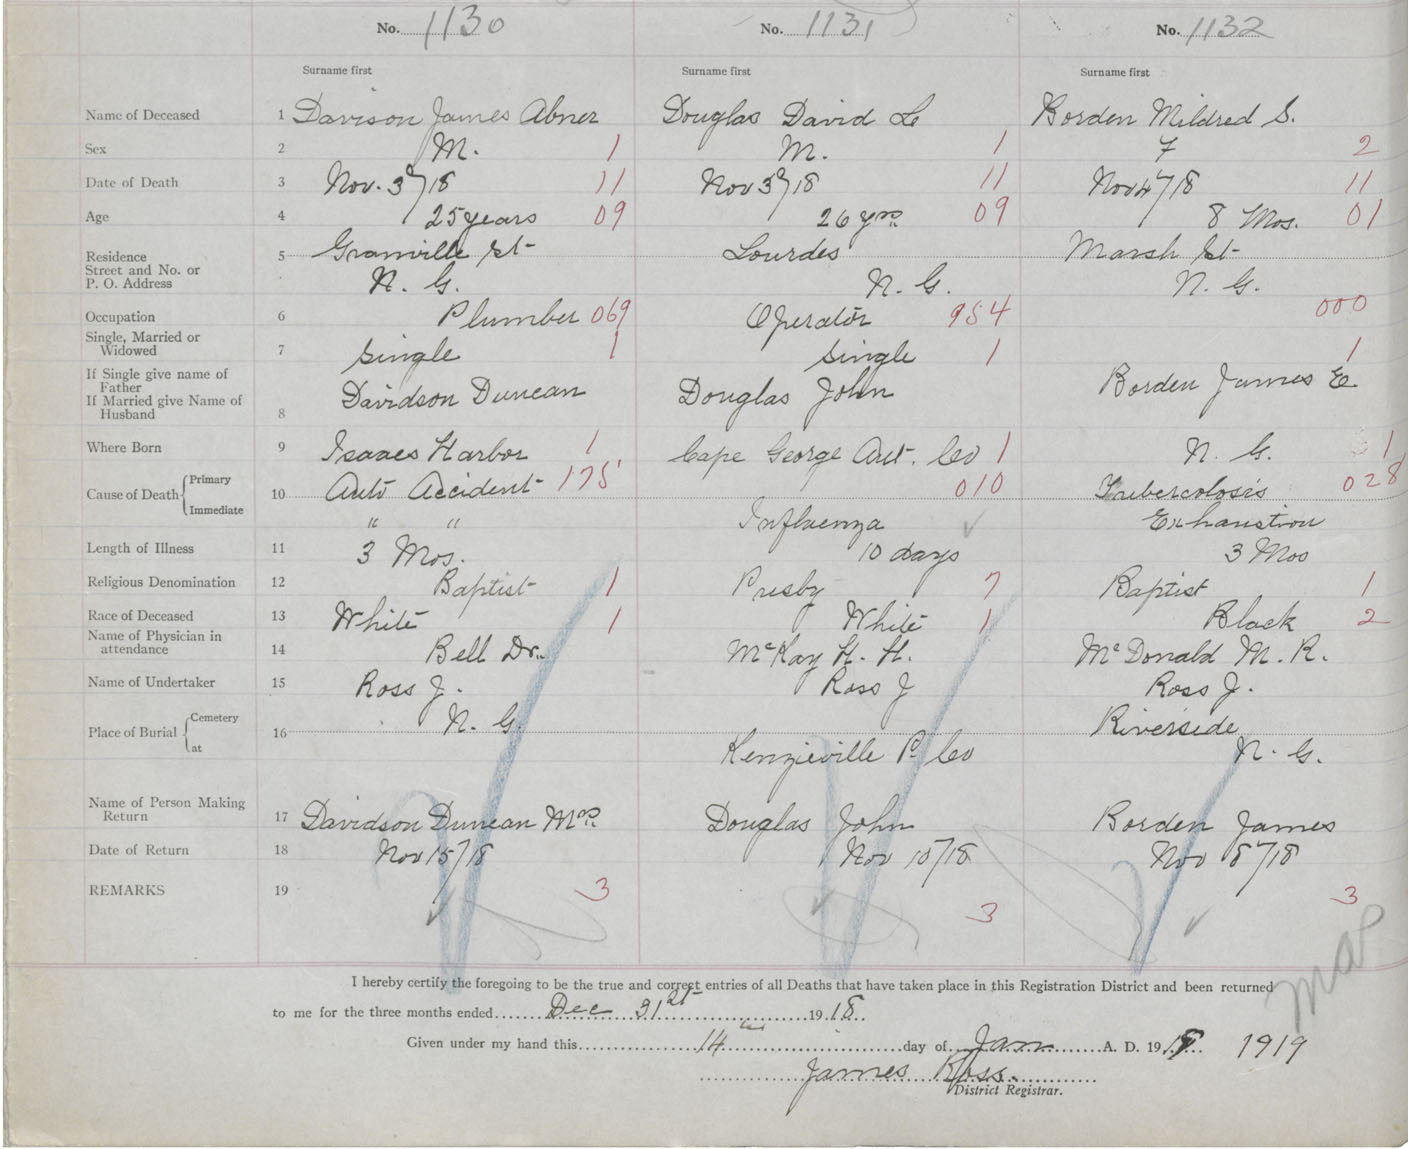 No. 1130 No. 1131 No. 1132
Surname first Surname first Surname first
Name of Deceased 1 Davison James Abner Douglas David L Borden Mildred S.
Sex 2 M. 1 M. 1 F 2
Date of Death 3 Nov. 3/18 11 Nov 3/18 11 Nov 4/18 11
Age 4 25 years 09 26 yrs 09 8 Mos. 01
Residence 5 Granville St Lourdes Marsh St
Street and No. or
P. O. Address N. G. N. G. N. G.
Occupation 6 Plumber 069 Operator 954 000
Single, Married or
Widowed 7 Single 1 Single 1 1
If Single give name of
Father
If Married give Name of
Husband 8 Davidson Duncan Douglas John Borden James E.
Where Born 9 Isaacs Harbor 1 Cape George Ant. Co 1 N. G. 1
Cause of Death Primary 10 Auto Accident 175 010 Tubercolosis 028
Immediate " " Influenza Exhaustion
Length of Illness 11 3 Mos. 10 days 3 Mos
Religious Denomination 12 Baptist 1 Presby 7 Baptist 1
Race of Deceased 13 White 1 White 1 Black 2
Name of Physician in
attendance 14 Bell Dr. McKay H. H. McDonald M. R.
Name of Undertaker 15 Ross J. Ross J Ross J.
Place of Burial Cemetery 16 N. G. Riverside
at Kenzieville P. Co N. G.
Name of Person Making
Return 17 Davidson Duncan Mrs. Douglas John Borden James
Date of Return 18 Nov 15/18 Nov 10/18 Nov 8/18
REMARKS 19 3 3 3
I hereby certify the foregoing to be the true and correct entries of all Deaths that have taken place in this Registration District and been returned
to me for the three months ended Dec 31st 1918
Given under my hand this 14 day of Jan A. D. 19 1919
James Ross.
District Registrar.